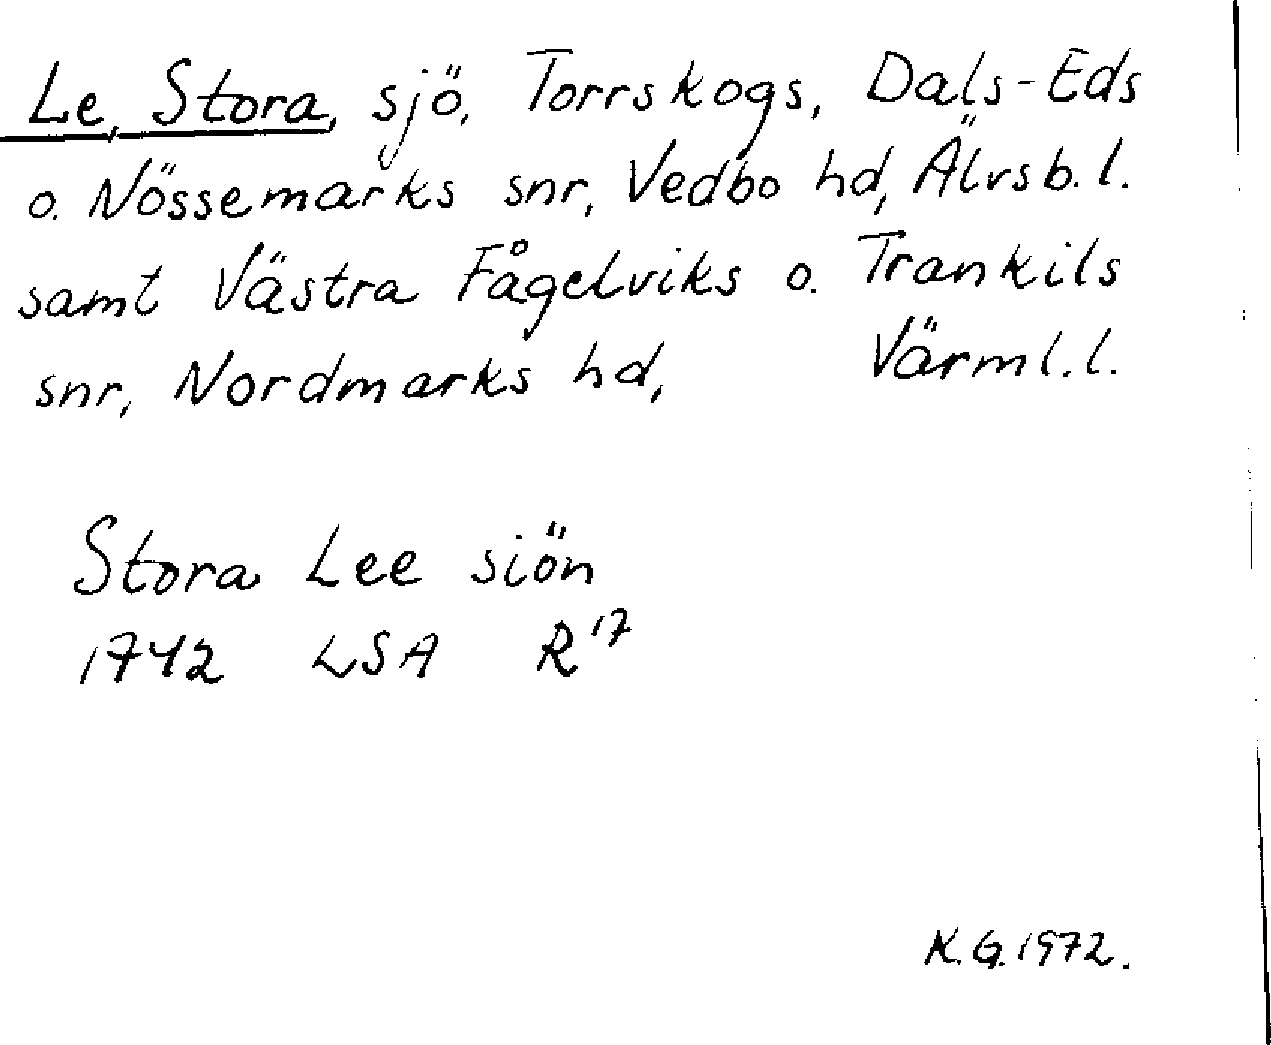 Le, Stora, sjö, Torrskogs, Dals-Eds
o. Nössemarks snr, Vedbo hd, Älvsb. l.
samt Västra Fågelviks o. Trankils
snr, Nordmarks hd, Värml. l.
Stora Lee siön
1742 LSA R 17
K.G. 1972.